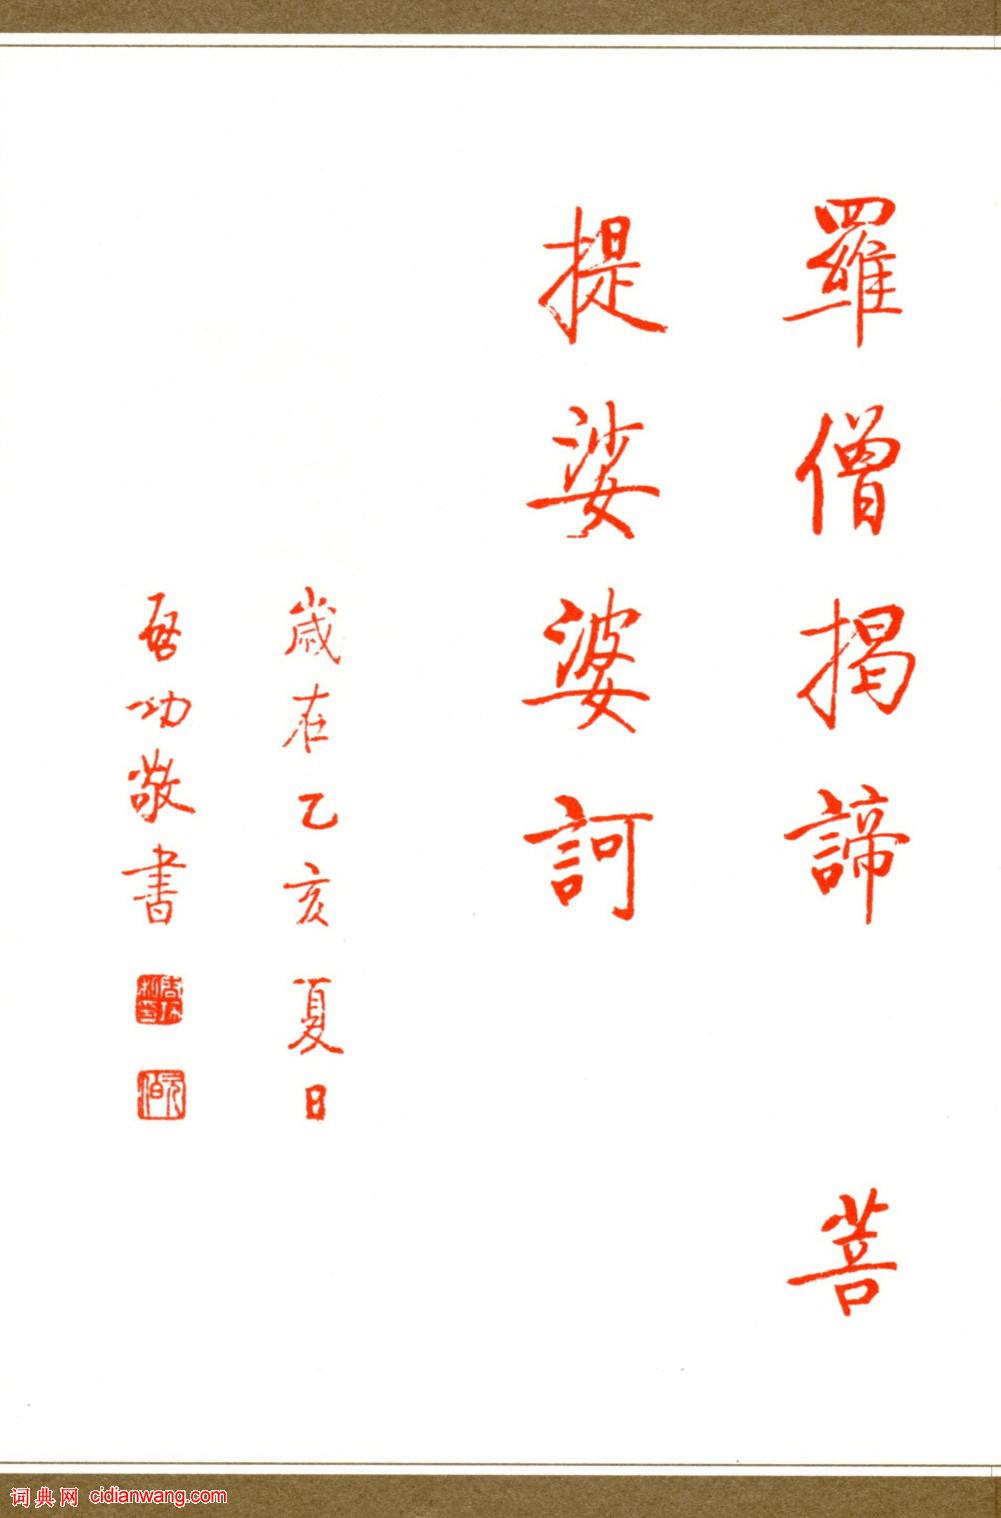 羅僧揭諦 菩
提娑婆訶
歲在乙亥夏日
啓功敬書
元伯
词典网 cidianwang.com